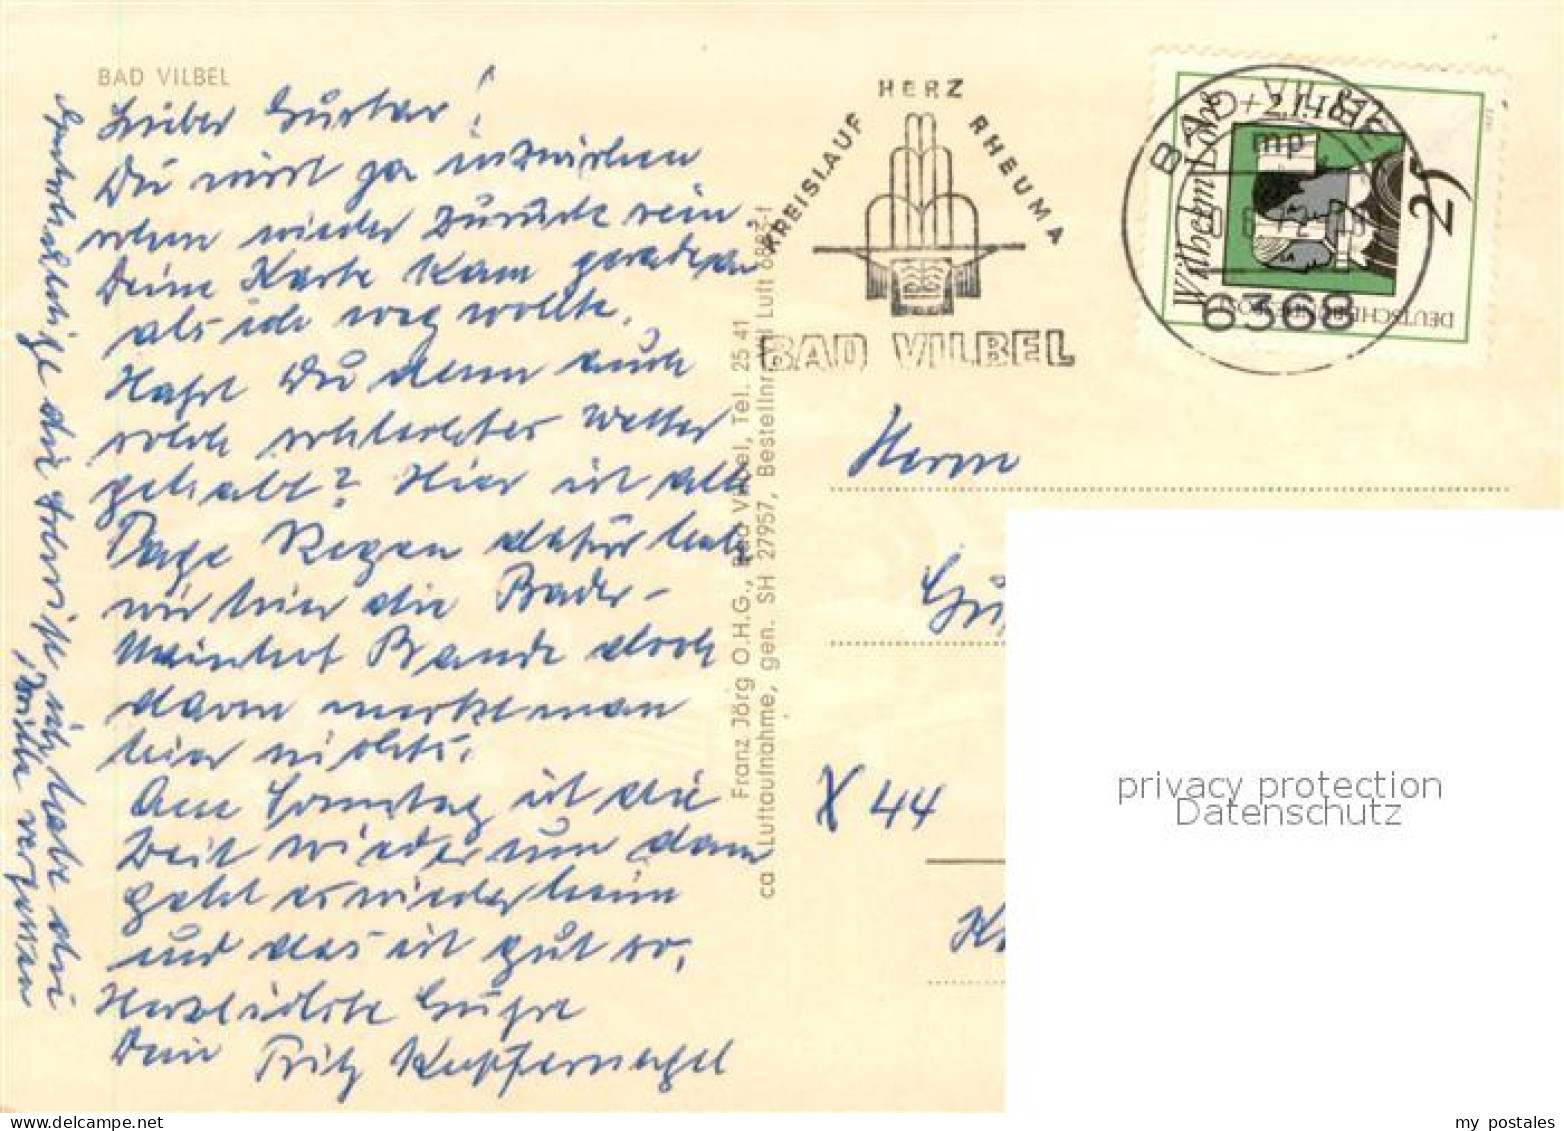 BAD VILBEL
Lieber Gustav!
Du wirst ja inzwischen
schon wieder zurück sein
Deine Karte kam geradezu
als ich weg wollte.
Hast Du denn auch
solch schlechtes Wetter
gehabt? Hier ist alle
Tage Regen dafür hab
wir hier die Bader-
Meinhof Bande doch
davon merkt man
hier nichts.
Am Sonntag ist die
Zeit wieder um dann
geht es wieder heim
und das ist gut so.
Herzlichste Grüße
Dein Fritz Kupfernagel
die ich habe die
Brille vergessen
Franz Jörg O.H.G., Bad Vilbel, Tel. 25 41
Luftaufnahme, gen. SH 27957, Bestellnr. Luft
HERZ
KREISLAUF
RHEUMA
BAD VILBEL
BAD VILBEL
mp
6368
Wilhelm Löhe
25
DEUTSCHE BUNDESPOST
1972
Herrn
X 44
privacy protection
Datenschutz
my postales